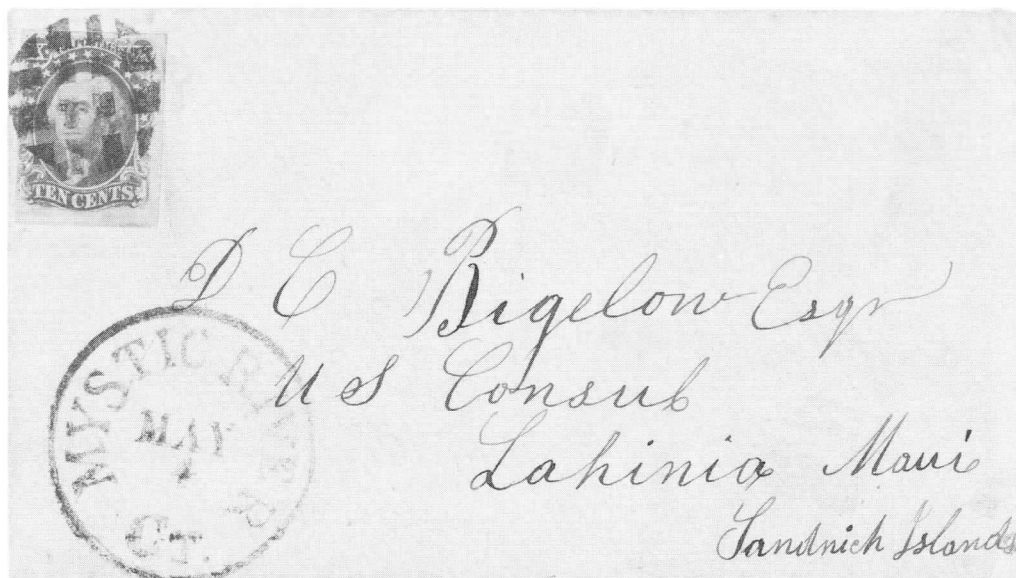 TEN CENTS
D C Bigelow Esqr
U S Consul
Lahinia Maui
Sandwich Islands
MYSTIC RIVER
MAY
CT.